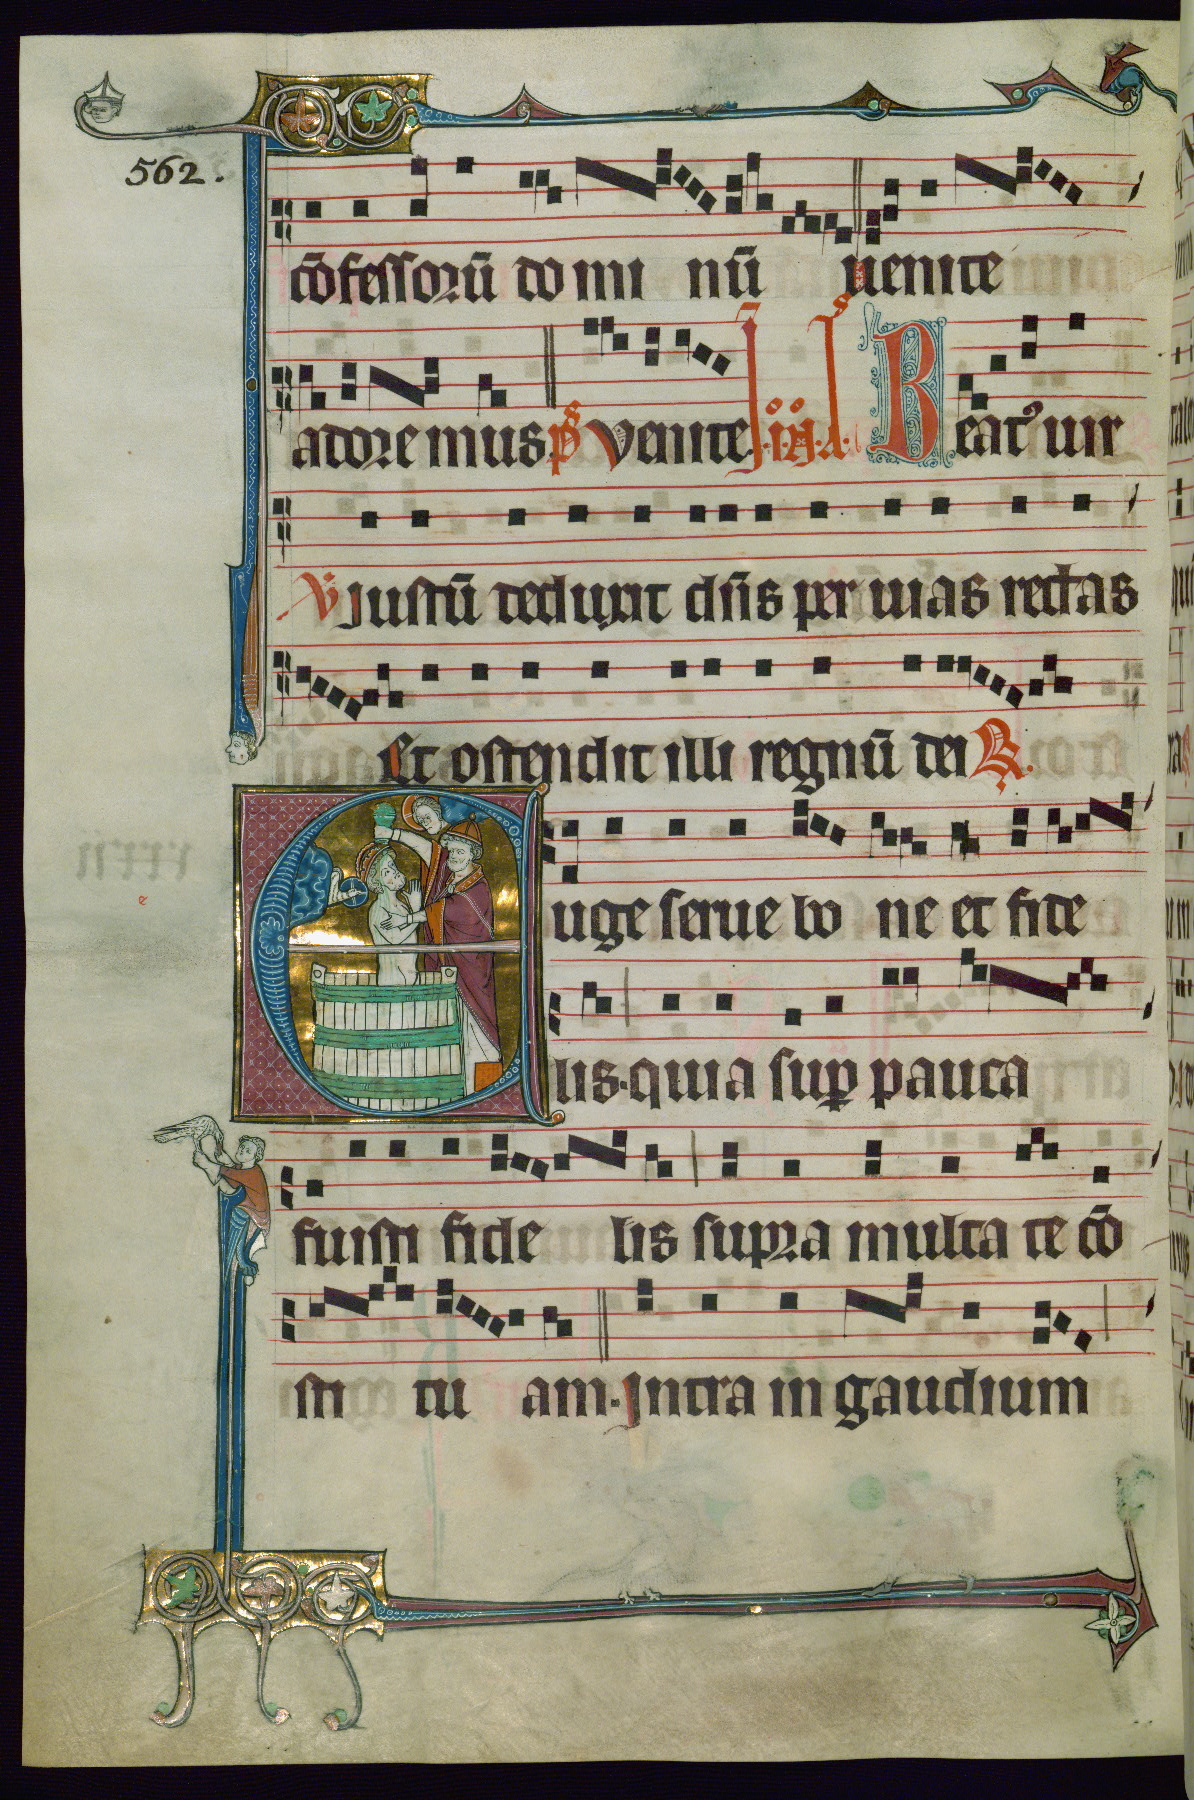 562.
cōfessorū domi nū uenite
adoremus. ps Venite. Beatꝰ uir
V Justū deduxit dn̄s per uias rectas
Et ostendit illi regnū dei R.
Euge serue bo ne et fide
lis. quia sup pauca
fuisti fide lis supra multa te cō
sti tu am. Intra in gaudium